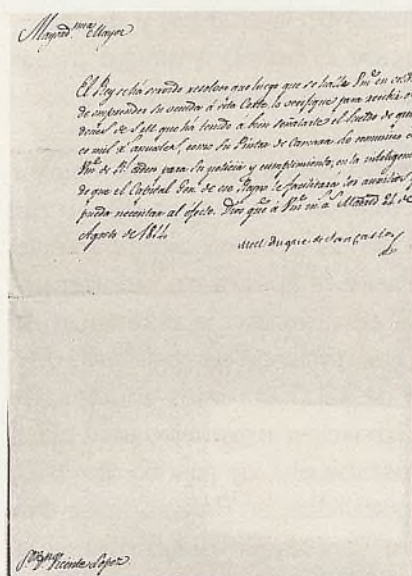 Mayord.mia Mayor
El Rey se há servido resolver que luego que se halle Vm. en
de emprender su venida á esta Corte, lo verifique para recibir
de S.M. que há tenido á bien señalarle el sueldo de
mil r.s anuales, como su Pintor de Camara. Lo comunico
Vm. de R.l orden para su noticia y cumplimiento, en la inteligencia
de que el Capital Gen. de ese Reyno le facilitará los auxilios
pueda necesitar al efecto. Dios gue á Vm. m. a. Madrid 21 de
Agosto de 1814
el Duque de San Carlos
S.or D.n Vicente Lopez